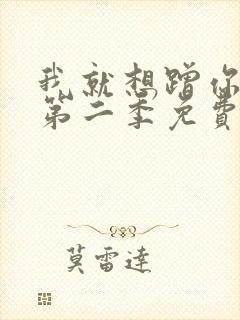 我就想蹭你
第二季免費
莫雷達